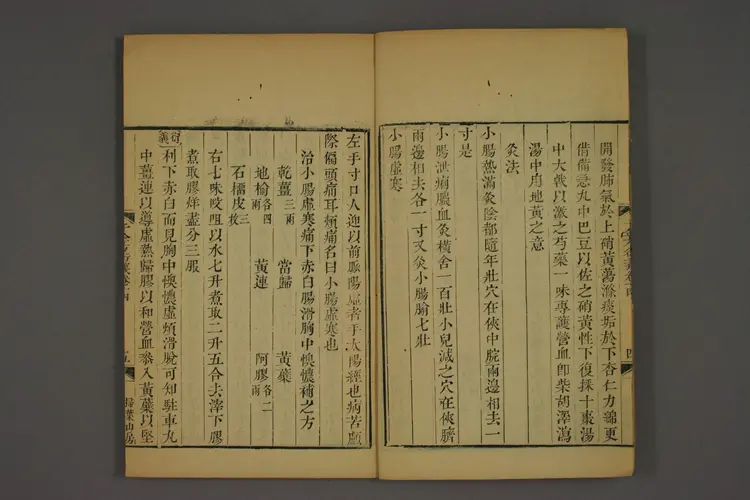 開發肺氣於上硝黃蕩滌痰垢於下杏仁力綿更
借備急丸中巴豆以佐之硝黃性下復採十棗湯
中大戟以激之芍藥一味專護營血卽柴胡澤瀉
湯中用地黃之意
灸法
小腸熱滿灸陰都隨年壯穴在俠中脘兩邊相去一
寸是
小腸泄痢膿血灸橫舍一百壯小兒減之穴在俠臍
兩邊相去各一寸又灸小腸腧七壯
小腸虛寒
四
左手寸口人迎以前脈陽虛者手太陽經也病苦顱
際偏頭痛耳頰痛名曰小腸虛寒也
治小腸虛寒痛下赤白腸滑胸中懊憹補之方
乾薑三兩 當歸 黃蘗
地榆各四兩 黃連 阿膠各二兩
石榴皮三枚
右七味㕮咀以水七升煮取二升五合去滓下膠
煮取膠烊盡分三服
衍義利下赤白而見胸中懊憹虛煩滑脫可知駐車丸
中薑連以導虛熱歸膠以和營血黎入黃蘗以堅
五
掃葉山房